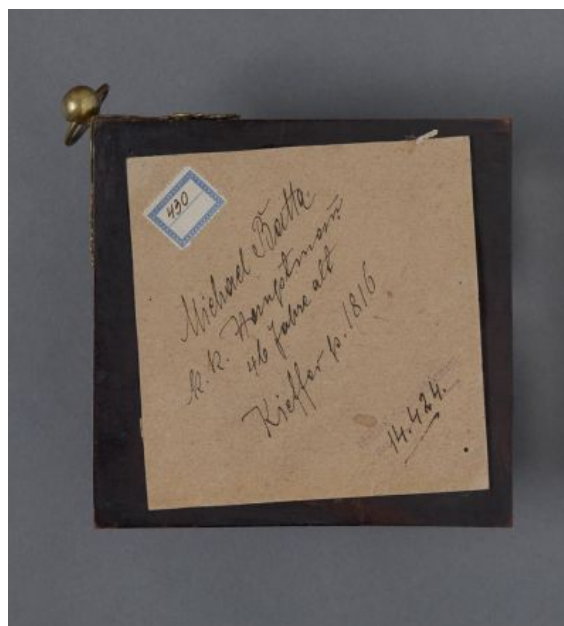 430
Michael Batta
k.k. Hauptmann
46 Jahre alt
Kieffer p. 1816
14.424.